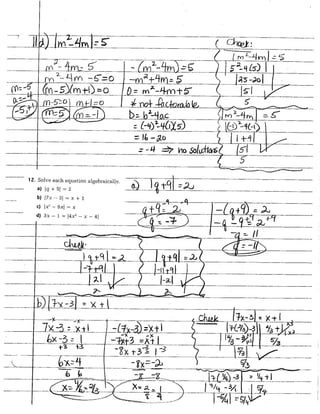 11d) |m²-4m|=5
m²-4m=5
m²-4m-5=0
(m-5)(m+1)=0
m-5=0 | m+1=0
m=5 m=-1
m=-5
a=-4
-5,+1
-(m²-4m)=5
-m²+4m=5
0=m²-4m+5
* not factorable
D=b²-4ac
=(-4)²-4(1)(5)
=16-20
=-4 ⇒ no solutions
Check:
|m²-4m|=5
|5²-4(5)|
|25-20|
|5| ✓
5
|m²-4m| =5
|(-1)²-4(-1)|
|1+4|
|5| ✓
5
12. Solve each equation algebraically.
a) |q + 9| = 2
b) |7x - 3| = x + 1
c) |x² - 6x| = x
d) 3x - 1 = |4x² - x - 4|
a) |q+9|=2
q+9=2
-9 -9
q=-7
-(q+9)=2
-q-9=2
+9 +9
-q=11
q=-11
check
|q+9|=2
|-7+9|
|2| ✓
2
|q+9|=2
|-11+9|
|-2| ✓
2
b) |7x-3| = x+1
7x-3=x+1
6x-3=1
+3 +3
6x=4
6 6
x=4/6=2/3
-(7x-3)=x+1
-7x+3=x+1
-8x+3=1
-3
-8x=-2
-8 -8
x=2/8=1/4
Check
|7x-3|=x+1
|7(2/3)-3|
|14/3-9/3| 5/3
|5/3| ✓
5/3
|7(1/4)-3| = 1/4+1
|-5/4|=5/4 ✓